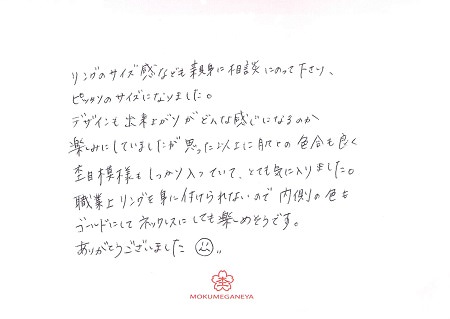 リングのサイズ感なども親身に相談にのって下さり、
ピッタリのサイズになりました。
デザインも出来上がりがどんな感じになるのか
楽しみにしていましたが思った以上に 色合も良く
杢目模様もしっかり入っていて、とても気に入りました。
職業上リングを身に付けられないので内側の色も
ゴールドにしてネックレスにしても楽しめそうです。
ありがとうございました
MOKUMEGANEYA